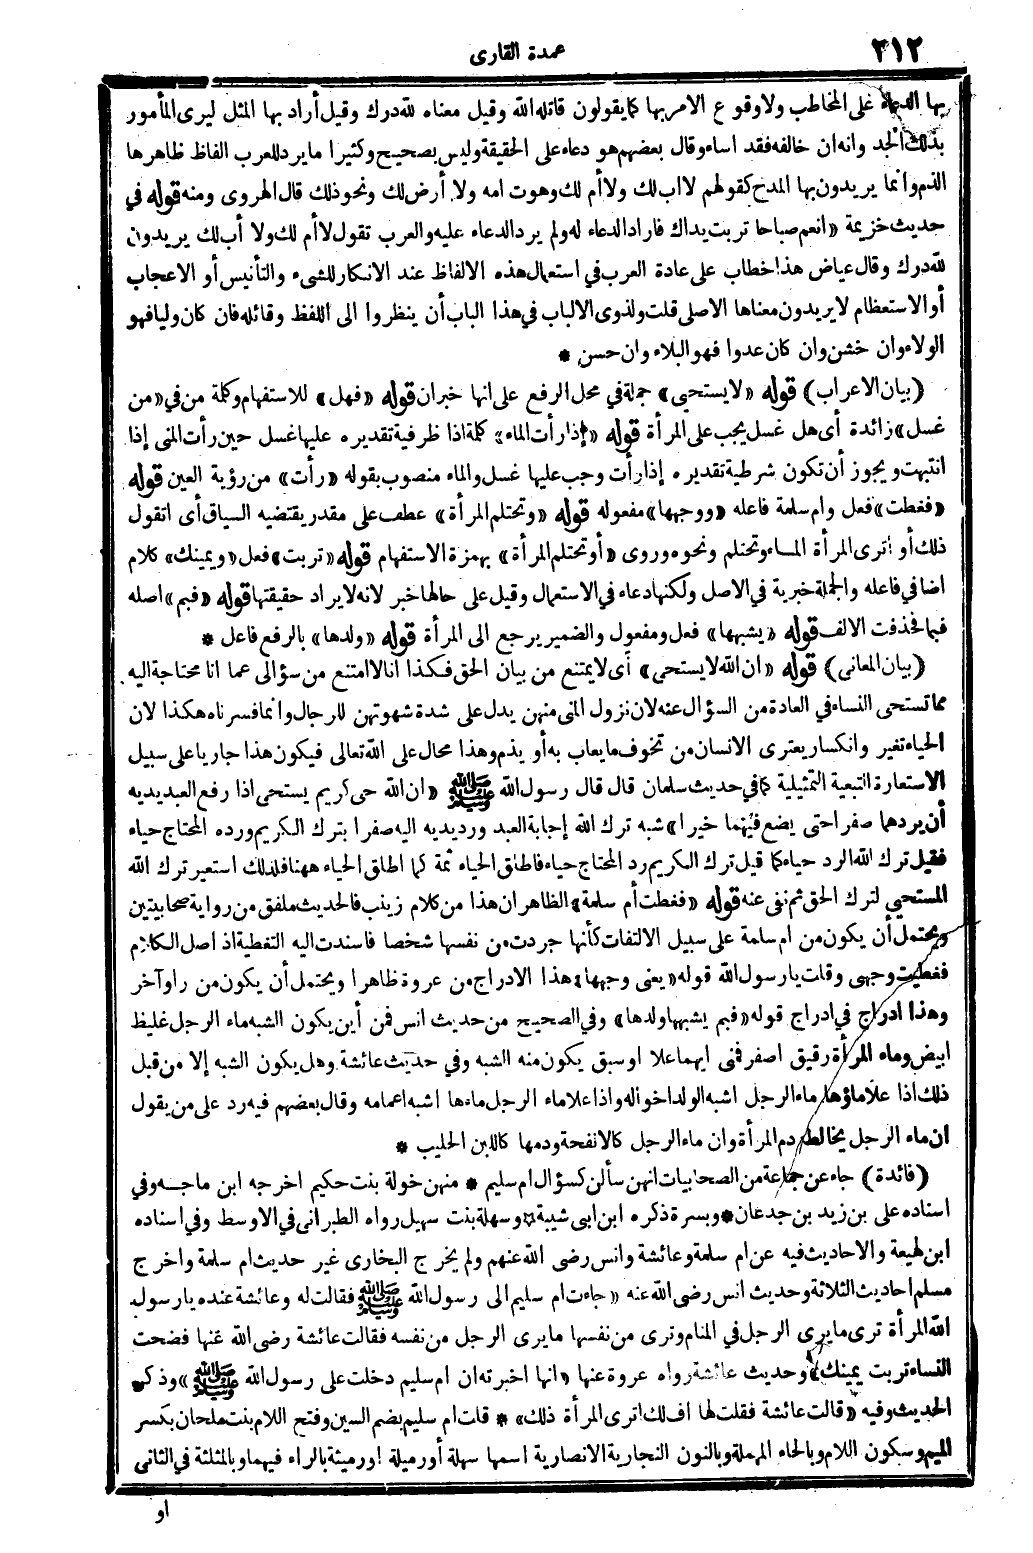 ٢١٢
عمدة القارى
بها الدعاء على المخاطب ولا وقوع الامر بها كما يقولون قاتله الله وقيل معناه لله درك وقيل أراد بها المثل ليرى المأمور
بذلك الجد وانه ان خالفه فقد اساء وقال بعضهم هو دعاء على الحقيقة وليس بصحيح وكثيرا ما يرد للعرب الفاظ ظاهرها
الذم وانما يريدون بها المدح كقولهم لا اب لك ولا أم لك وهوت امه ولا أرض لك ونحو ذلك قال الهروى ومنه قوله في
حديث خزيمة «انعم صباحا تربت يداك فاراد الدعاء له ولم يرد الدعاء عليه والعرب تقول لا أم لك ولا أب لك يريدون
لله درك وقال عياض هذا خطاب على عادة العرب في استعمال هذه الالفاظ عند الانكار للشىء والتأنيس أو الاعجاب
أو الاستعظام لا يريدون معناها الاصلى قلت ولذوى الالباب في هذا الباب أن ينظروا الى اللفظ وقائله فان كان وليا فهو
الولاء وان خشن وان كان عدوا فهو البلاء وان حسن *
(بيان الاعراب) قوله «لا يستحيى» جملة في محل الرفع على انها خبر ان قوله «فهل» للاستفهام وكلمة من في «من
غسل» زائدة أى هل غسل يجب على المرأة قوله «إذا رأت الماء» كلمة اذا ظرفية تقديره عليها غسل حين رأت المنى إذا
انتبهت ويجوز أن تكون شرطية تقديره إذا رأت وجب عليها غسل والماء منصوب بقوله «رأت» من رؤية العين قوله
«فغطت» فعل وام سلمة فاعله «ووجهها» مفعوله قوله «وتحتلم المرأة» عطف على مقدر يقتضيه السياق أى اتقول
ذلك أو أترى المرأة الماء وتحتلم ونحوه وروى «أو تحتلم المرأة» بهمزة الاستفهام قوله «تربت» فعل «ويمينك» كلام
اضافي فاعله والجملة خبرية في الاصل ولكنها دعاء في الاستعمال وقيل على حالها خبر لانه لا يراد حقيقتها قوله «فبم» اصله
فبما فحذفت الالف قوله «يشبهها» فعل ومفعول والضمير يرجع الى المرأة قوله «ولدها» بالرفع فاعل *
(بيان المعانى) قوله «ان الله لا يستحيى» أى لا يمتنع من بيان الحق فكذا انا لا امتنع من سؤالى عما انا محتاجة اليه
مما تستحى النساء في العادة من السؤال عنه لان نزول المنى منهن يدل على شدة شهوتهن للرجال وانما فسرناه هكذا لان
الحياء تغير وانكسار يعترى الانسان من تخوف ما يعاب به أو يذم وهذا محال على الله تعالى فيكون هذا جاريا على سبيل
الاستعارة التبعية التمثيلية كما في حديث سلمان قال قال رسول الله ﷺ «ان الله حي كريم يستحى اذا رفع العبد يديه
أن يردهما صفرا حتى يضع فيهما خيرا» شبه ترك الله إجابة العبد ورد يديه اليه صفرا بترك الكريم ورده المحتاج حياء
فقيل ترك الله الرد حياء كما قيل ترك الكريم رد المحتاج حياء فاطلق الحياء ثمة كما اطلق الحياء ههنا فلذلك استعير ترك الله
المستحيي لترك الحق ثم نفى عنه قوله «فغطت أم سلمة» الظاهر ان هذا من كلام زينب فالحديث ملفق من رواية صحابيتين
ويحتمل أن يكون من ام سلمة على سبيل الالتفات كأنها جردت من نفسها شخصا فاسندت اليه التغطية اذ اصل الكلام
فغطيت وجهى وقلت يا رسول الله قوله «يعنى وجهها» هذا الادراج من عروة ظاهرا ويحتمل أن يكون من راو آخر
وهذا ادراج في ادراج قوله «فبم يشبهها ولدها» وفي الصحيح من حديث انس فمن أين يكون الشبه ماء الرجل غليظ
ابيض وماء المرأة رقيق اصفر فمن ايهما علا او سبق يكون منه الشبه وفي حديث عائشة وهل يكون الشبه إلا من قبل
ذلك اذا علا ماؤها ماء الرجل اشبه الولد اخواله واذا علا ماء الرجل ماءها اشبه اعمامه وقال بعضهم فيه رد على من يقول
ان ماء الرجل يخالط دم المرأة وان ماء الرجل كالانفحة ودمها كاللبن الحليب *
(فائدة) جاء عن جماعة من الصحابيات انهن سألن كسؤال ام سليم * منهن خولة بنت حكيم اخرجه ابن ماجه وفي
اسناده على بن زيد بن جدعان * وبسرة ذكره ابن ابى شيبة * وسهلة بنت سهيل رواه الطبرانى في الاوسط وفي اسناده
ابن لهيعة والاحاديث فيه عن ام سلمة وعائشة وانس رضى الله عنهم ولم يخرج البخارى غير حديث ام سلمة واخرج
مسلم احاديث الثلاثة وحديث انس رضى الله عنه «جاءت ام سليم الى رسول الله ﷺ فقالت له وعائشة عنده يا رسول
الله المرأة ترى ما يرى الرجل في المنام وترى من نفسها ما يرى الرجل من نفسه فقالت عائشة رضى الله عنها فضحت
النساء تربت يمينك» وحديث عائشة رواه عروة عنها «انها اخبرته ان ام سليم دخلت على رسول الله ﷺ» وذكر
الحديث وفيه «قالت عائشة فقلت لها اف لك اترى المرأة ذلك» * قلت ام سليم بضم السين وفتح اللام بنت ملحان بكسر
الميم وسكون اللام وبالحاء المهملة وبالنون النجارية الانصارية اسمها سهلة أو رميلة او رميثة بالراء فيهما وبالمثلثة في الثانى
او